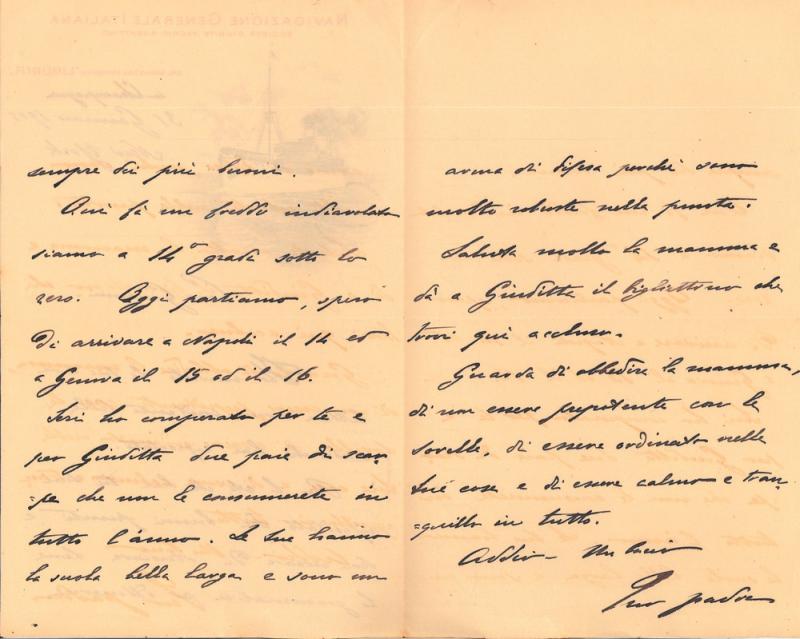 sempre dei più buoni.
Qui fà un freddo indiavolato
siamo a 14° gradi sotto lo
zero. Oggi partiamo, spero
di arrivare a Napoli il 14 ed
a Genova il 15 ed il 16.
Ieri ho comperato per te e
per Giuditta due paie di scar-
=pe che non le consumerete in
tutto l'anno. Le tue hanno
la suola bella larga e sono un
arma di difesa perchè sono
molto robuste nella punta.
Saluta molto la mamma e
dà a Giuditta il bigliettino che
trovi quì accluso.
Guarda di obbedire la mamma,
di non essere prepotente con le
sorelle, di essere ordinato nelle
tue cose e di essere calmo e tran-
=quillo in tutto.
Addio - Un bacio
Tuo padre
NAVIGAZIONE GENERALE ITALIANA
"LIGURIA"